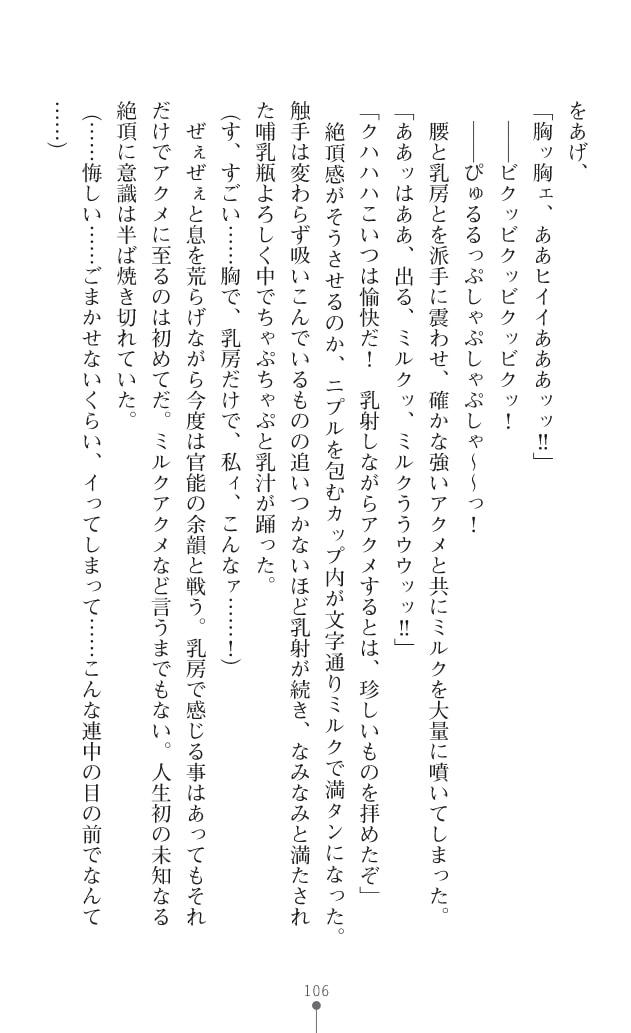 をあげ、
「胸ッ胸ェ、ああヒイイあああッッ!!」
――ビクッビクッビクッビクッ！
――ぴゅるるっぷしゃぷしゃぷしゃ〜〜っ！
腰と乳房とを派手に震わせ、確かな強いアクメと共にミルクを大量に噴いてしまった。
「ああッはああ、出る、ミルクッ、ミルクううウウッッ!!」
「クハハハこいつは愉快だ！　乳射しながらアクメするとは、珍しいものを拝めたぞ」
絶頂感がそうさせるのか、ニプルを包むカップ内が文字通りミルクで満タンになった。
触手は変わらず吸いこんでいるものの追いつかないほど乳射が続き、なみなみと満たされ
た哺乳瓶よろしく中でちゃぷちゃぷと乳汁が踊った。
（す、すごい……胸で、乳房だけで、私ィ、こんなァ……！）
ぜぇぜぇと息を荒らげながら今度は官能の余韻と戦う。乳房で感じる事はあってもそれ
だけでアクメに至るのは初めてだ。ミルクアクメなど言うまでもない。人生初の未知なる
絶頂に意識は半ば焼き切れていた。
（……悔しい……ごまかせないくらい、イってしまって……こんな連中の目の前でなんて
……）
106